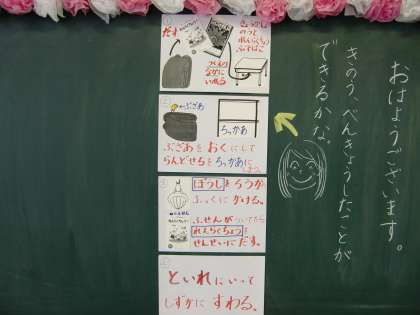 おはようございます。
きのう、べんきょうしたことが
できるかな。
①
だす
きょうかしょ
のうと
れんらくちょう
ふでばこ
つくえの
なかに
いれる
②
ぶざあ
ろっかあ
ぶざあをおくにして
らんどせるをろっかあに
③
ぼうしをろっか
ふっくにかける。
ふせんがついてたら
れんらくちょうを
せんせいにだす。
④
といれにいって
しずかにすわる。